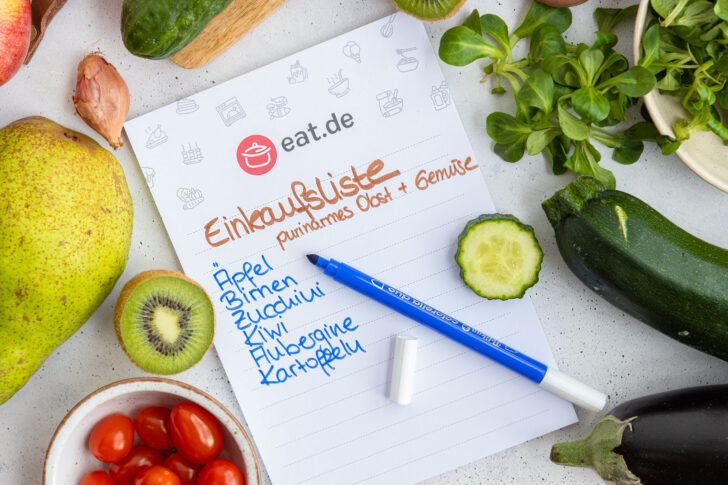 eat.de
Einkaufsliste
purinarmes Obst + Gemüse
Äpfel
Birnen
Zucchini
Kiwi
Aubergine
Kartoffeln
colorella duo